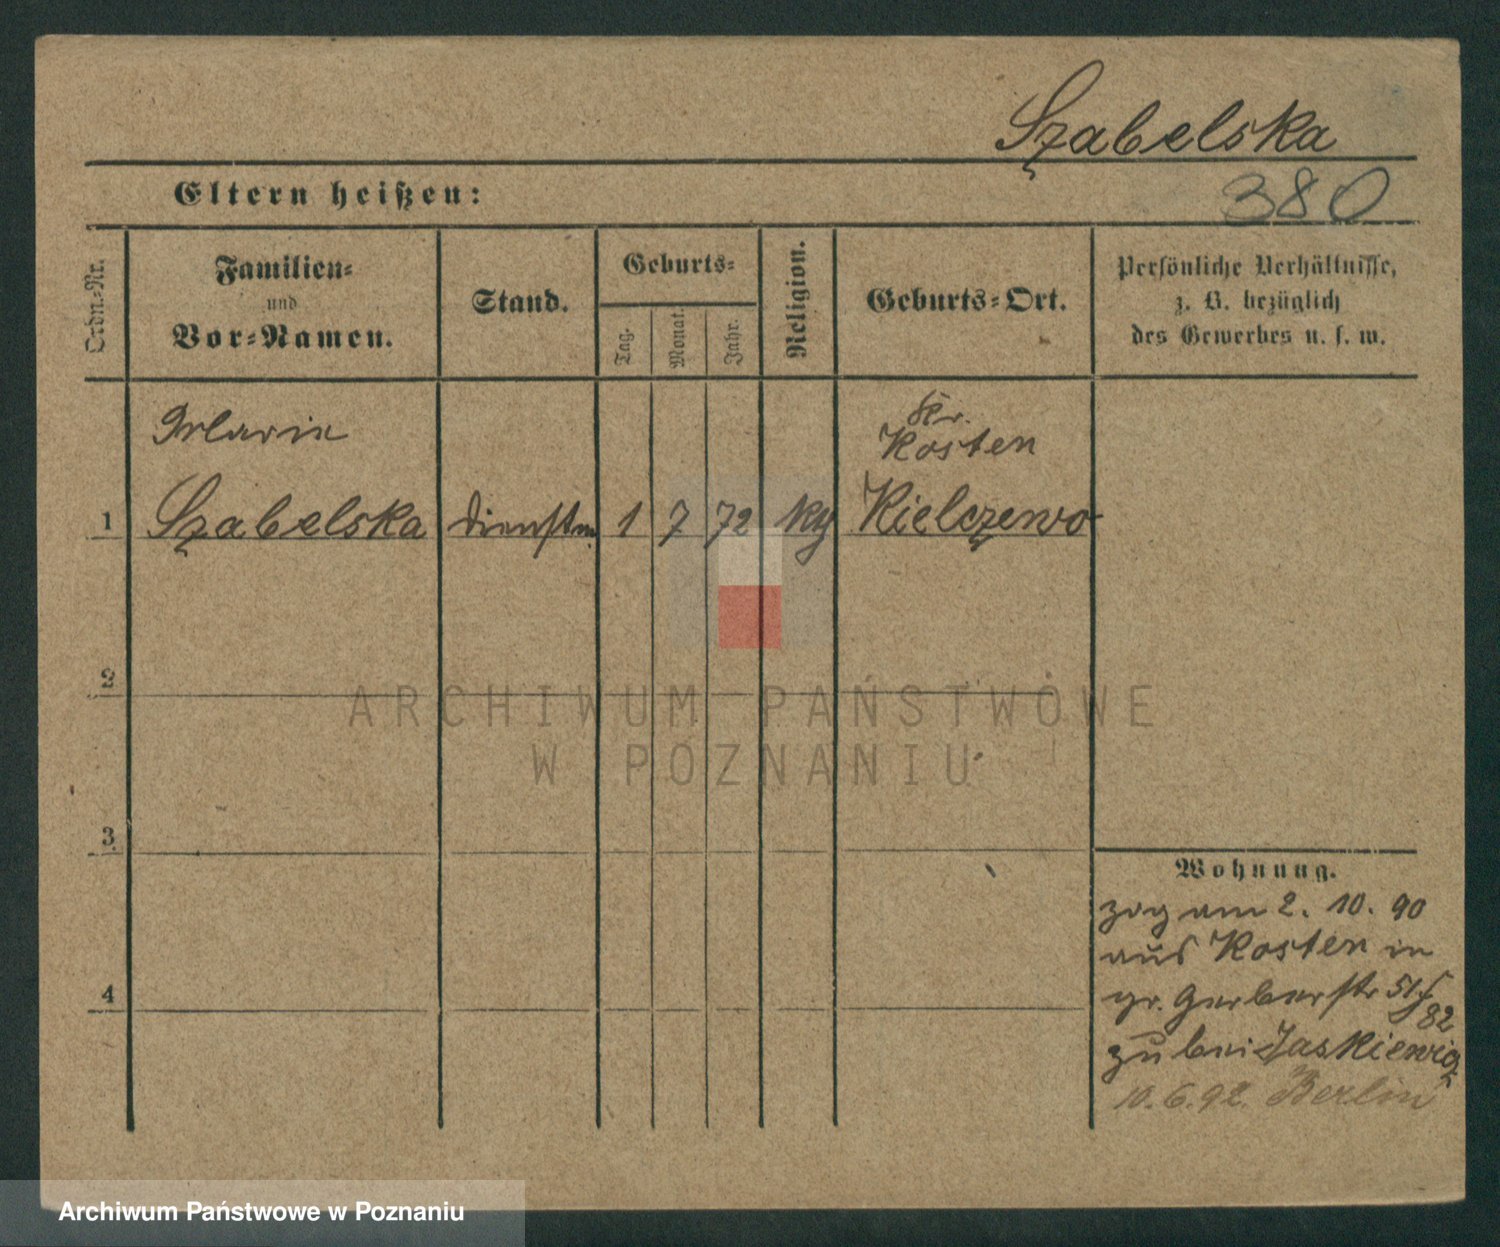 Szabelska
380
Eltern heißen:
Ordn.-Nr.
Familien-
und
Vor-Namen.
Stand.
Geburts-
Tag.
Monat.
Jahr.
Religion.
Geburts-Ort.
Persönliche Verhältnisse,
z. B. bezüglich
des Gewerbes u. s. w.
Marie
Kr.
Kosten
1 Szabelska Dienstm 1 7 72 Kg Kielczewo
2
3
4
Wohnung.
zog am 2. 10. 90
aus Kosten in
gr. Gerberstr 51
82
zu bei Jaskiewicz
10.6.92. Berlin
ARCHIWUM PAŃSTWOWE
W POZNANIU
Archiwum Państwowe w Poznaniu